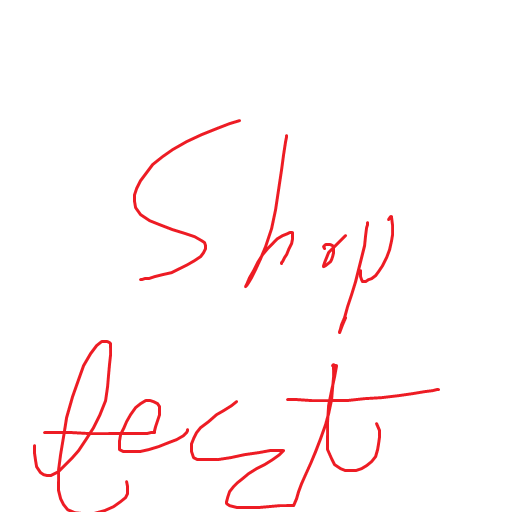 Shop
test